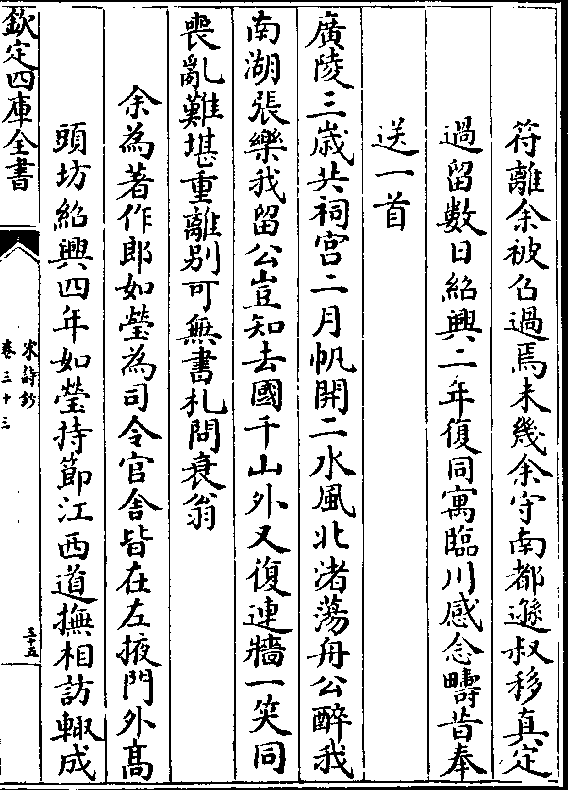 符離余被召過焉未幾余守南都遜叔移真定
過留數日紹興二年復同寓臨川感念疇昔奉
送一首
廣陵三歳共祠宫二月帆開二水風北渚蕩舟公醉我
南湖張樂我留公豈知去國千山外又復連牆一笑同
喪亂難堪重離别可無書札問衰翁
余為著作郎如瑩為司令官舍皆在左掖門外髙
頭坊紹興四年如瑩持節江西道撫相訪輙成
欽定四庫全書
宋詩鈔
卷三十三
三十五